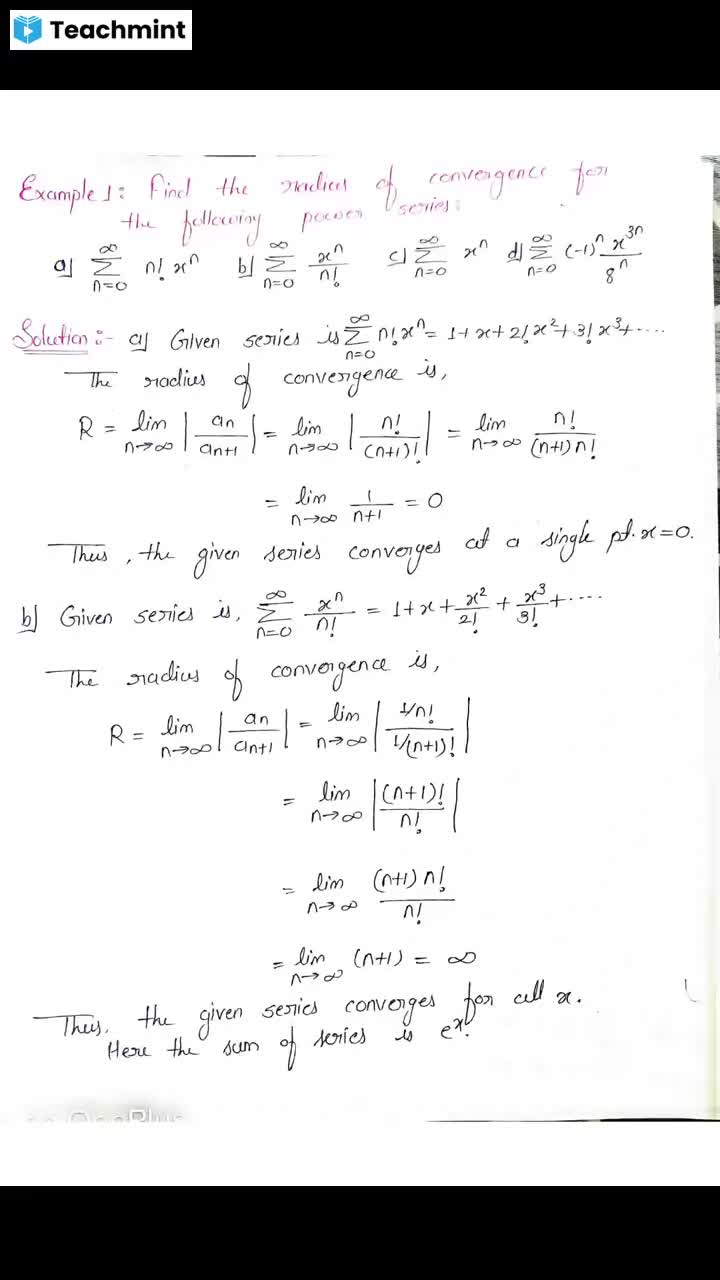 Teachmint
Example 1: Find the radius of convergence for
the following power series:
a] ∑_{n=0}^{∞} n! xⁿ b] ∑_{n=0}^{∞} xⁿ/n! c] ∑_{n=0}^{∞} xⁿ d] ∑_{n=0}^{∞} (-1)ⁿ x³ⁿ/8ⁿ
Solution:- a] Given series is ∑_{n=0}^{∞} n! xⁿ = 1+x+2! x²+3! x³+....
The radius of convergence is,
R = lim_{n→∞} |an/an+1| = lim_{n→∞} |n!/(n+1)!| = lim_{n→∞} n!/(n+1) n!
= lim_{n→∞} 1/n+1 = 0
Thus, the given series converges at a single pt. x=0.
b] Given series is, ∑_{n=0}^{∞} xⁿ/n! = 1+x+x²/2!+x³/3!+....
The radius of convergence is,
R = lim_{n→∞} |an/an+1| = lim_{n→∞} |1/n!/1/(n+1)!|
= lim_{n→∞} |(n+1)!/n!|
= lim_{n→∞} (n+1) n!/n!
= lim_{n→∞} (n+1) = ∞
Thus, the given series converges for all x.
Here the sum of series is eˣ.